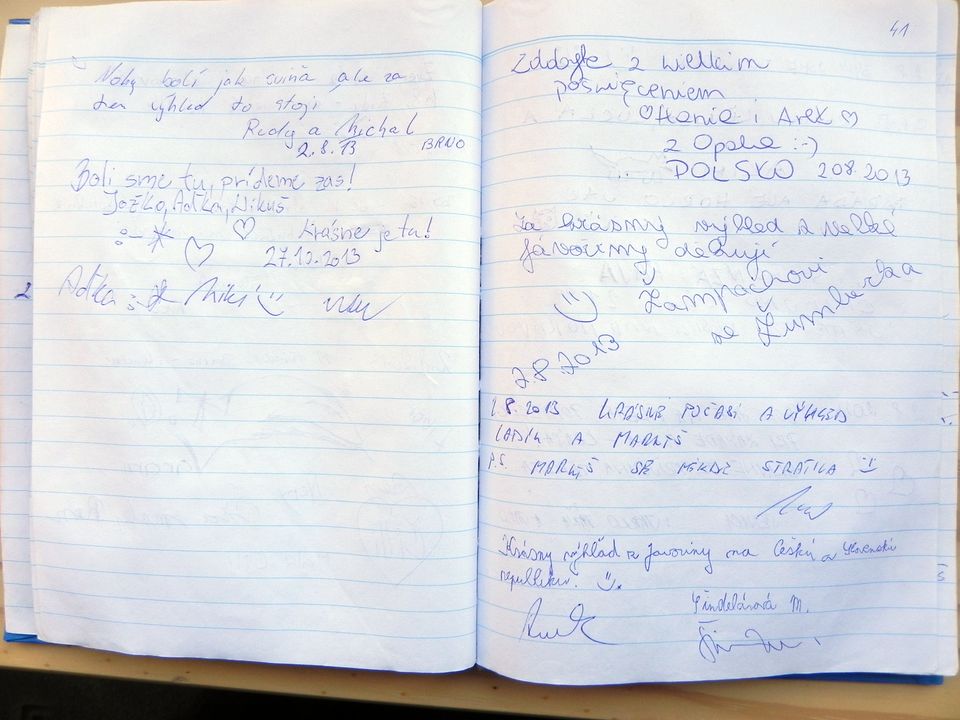 Nohy bolí jak sviňa ale za
ten výhled to stojí
Rudy a Michal
2.8.13 BRNO
Boli sme tu, prídeme zas!
Jožko, Aďka, Nikuš
Krásne je tu!
27.10.2013
Aďka
41
Zdobyte z wielkim
poświęceniem
Hania i Arek
z Opola :-)
POLSKO 2 08.2013
Za krásný výhled z velké
Javořiny děkují
Žampachovi
ze Žumberka
2.8.2013
2.8.2013 KRÁSNÉ POČASÍ A VÝHLED
LADÍK A MARKÉŠ
P.S. MARKÉŠ SE NIKDE STRATILA
Krásny výhľad z Javoriny na Českú a Slovenskú
republiku.
Šindelářová M.